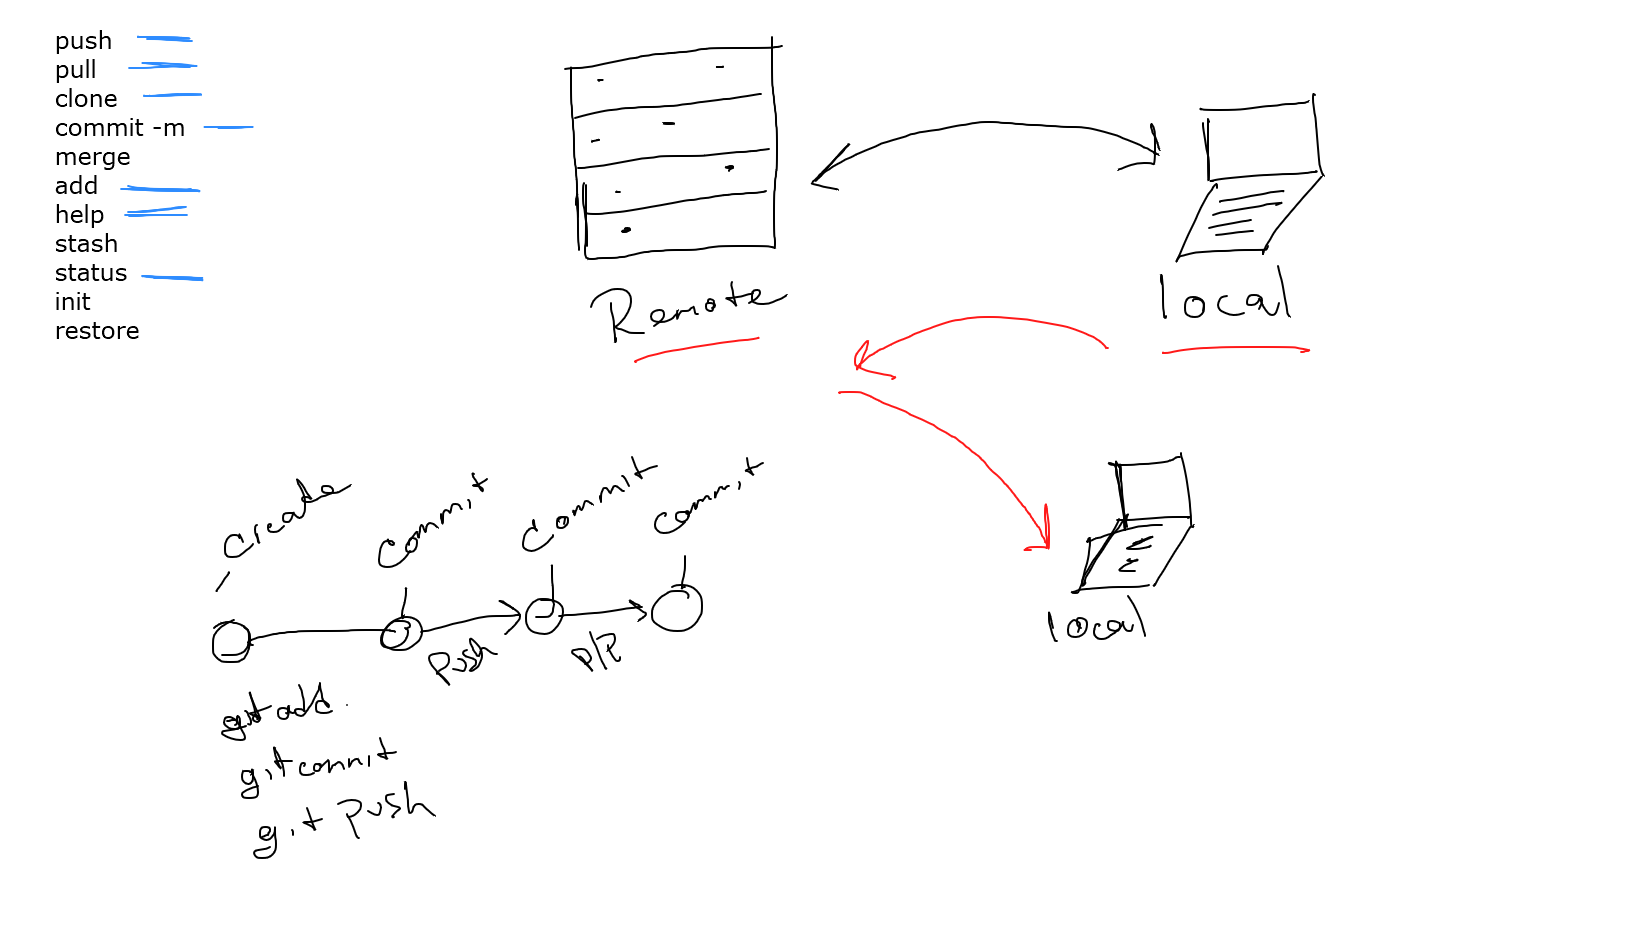 push
pull
clone
commit -m
merge
add
help
stash
status
init
restore
Remote
local
local
create
commit
commit
commit
Push
P/P
git add .
git commit
git push